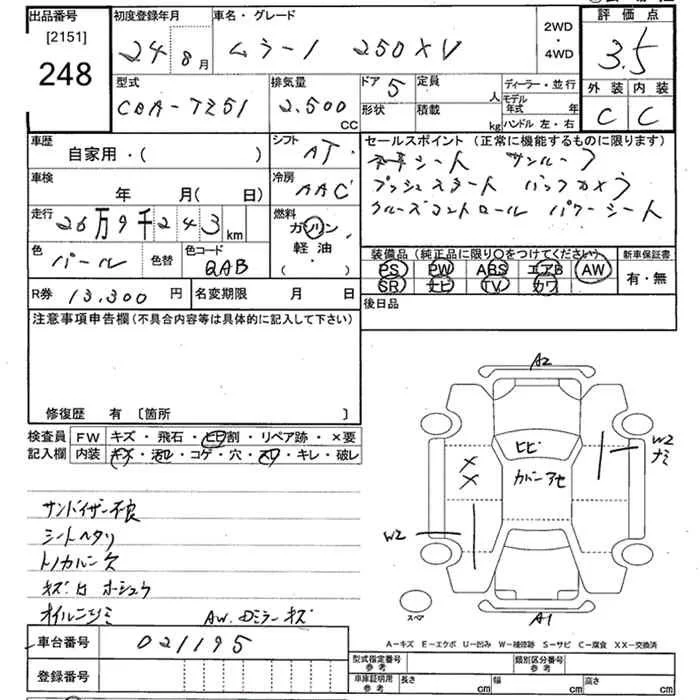 出品番号 初度登録年月 車名・グレード 評価点
[2151] 2WD
248 24年8月 ムラーノ 250XV ・4WD 3.5
型式 排気量 ドア 5 定員 人 ディーラー・並行 外装 内装
CBA-TZ51 2.500 CC 形状 積載 kg モデル年式 年 C C
ハンドル 左・右
車歴 シフト セールスポイント(正常に機能するものに限ります)
自家用・( ) AT 本革シート サンルーフ
車検 冷房 プッシュスタート バックカメラ
年 月( 日) AAC クルーズコントロール パワーシート
走行 26万9千243km 燃料 ガソリン
軽油
・( )
色 パール 色替 色コード QAB
装備品(純正品に限り〇をつけてください) 新車保証書
PS PW ABS エアB AW 有・無
SR ナビ TV カワ
R券 13,300円 名変期限 月 日 後日品
注意事項申告欄(不具合内容等は具体的に記入して下さい)
修復歴 有 [箇所 ]
検査員 FW キズ・飛石・ヒビ割・リペア跡・×要
記入欄 内装 キズ・汚れ・コゲ・穴・スレ・キレ・破レ
サンドイザー不良
シートヘタリ
トノカバー欠
キズ凹 ホーシュウ
オイルニジミ AW.Dミラーキズ
A2
W2
ナミ
ヒビ
XX
カバーアセ
W2
スペア
A1
A-キズ E-エクボ U-凹み W-補修跡 S-サビ C-腐食 XX-交換済
車台番号 021195
登録番号
型式指定番号 参考 類別区分番号 参考
車庫証明用 参考 長さ cm 幅 cm 高さ cm